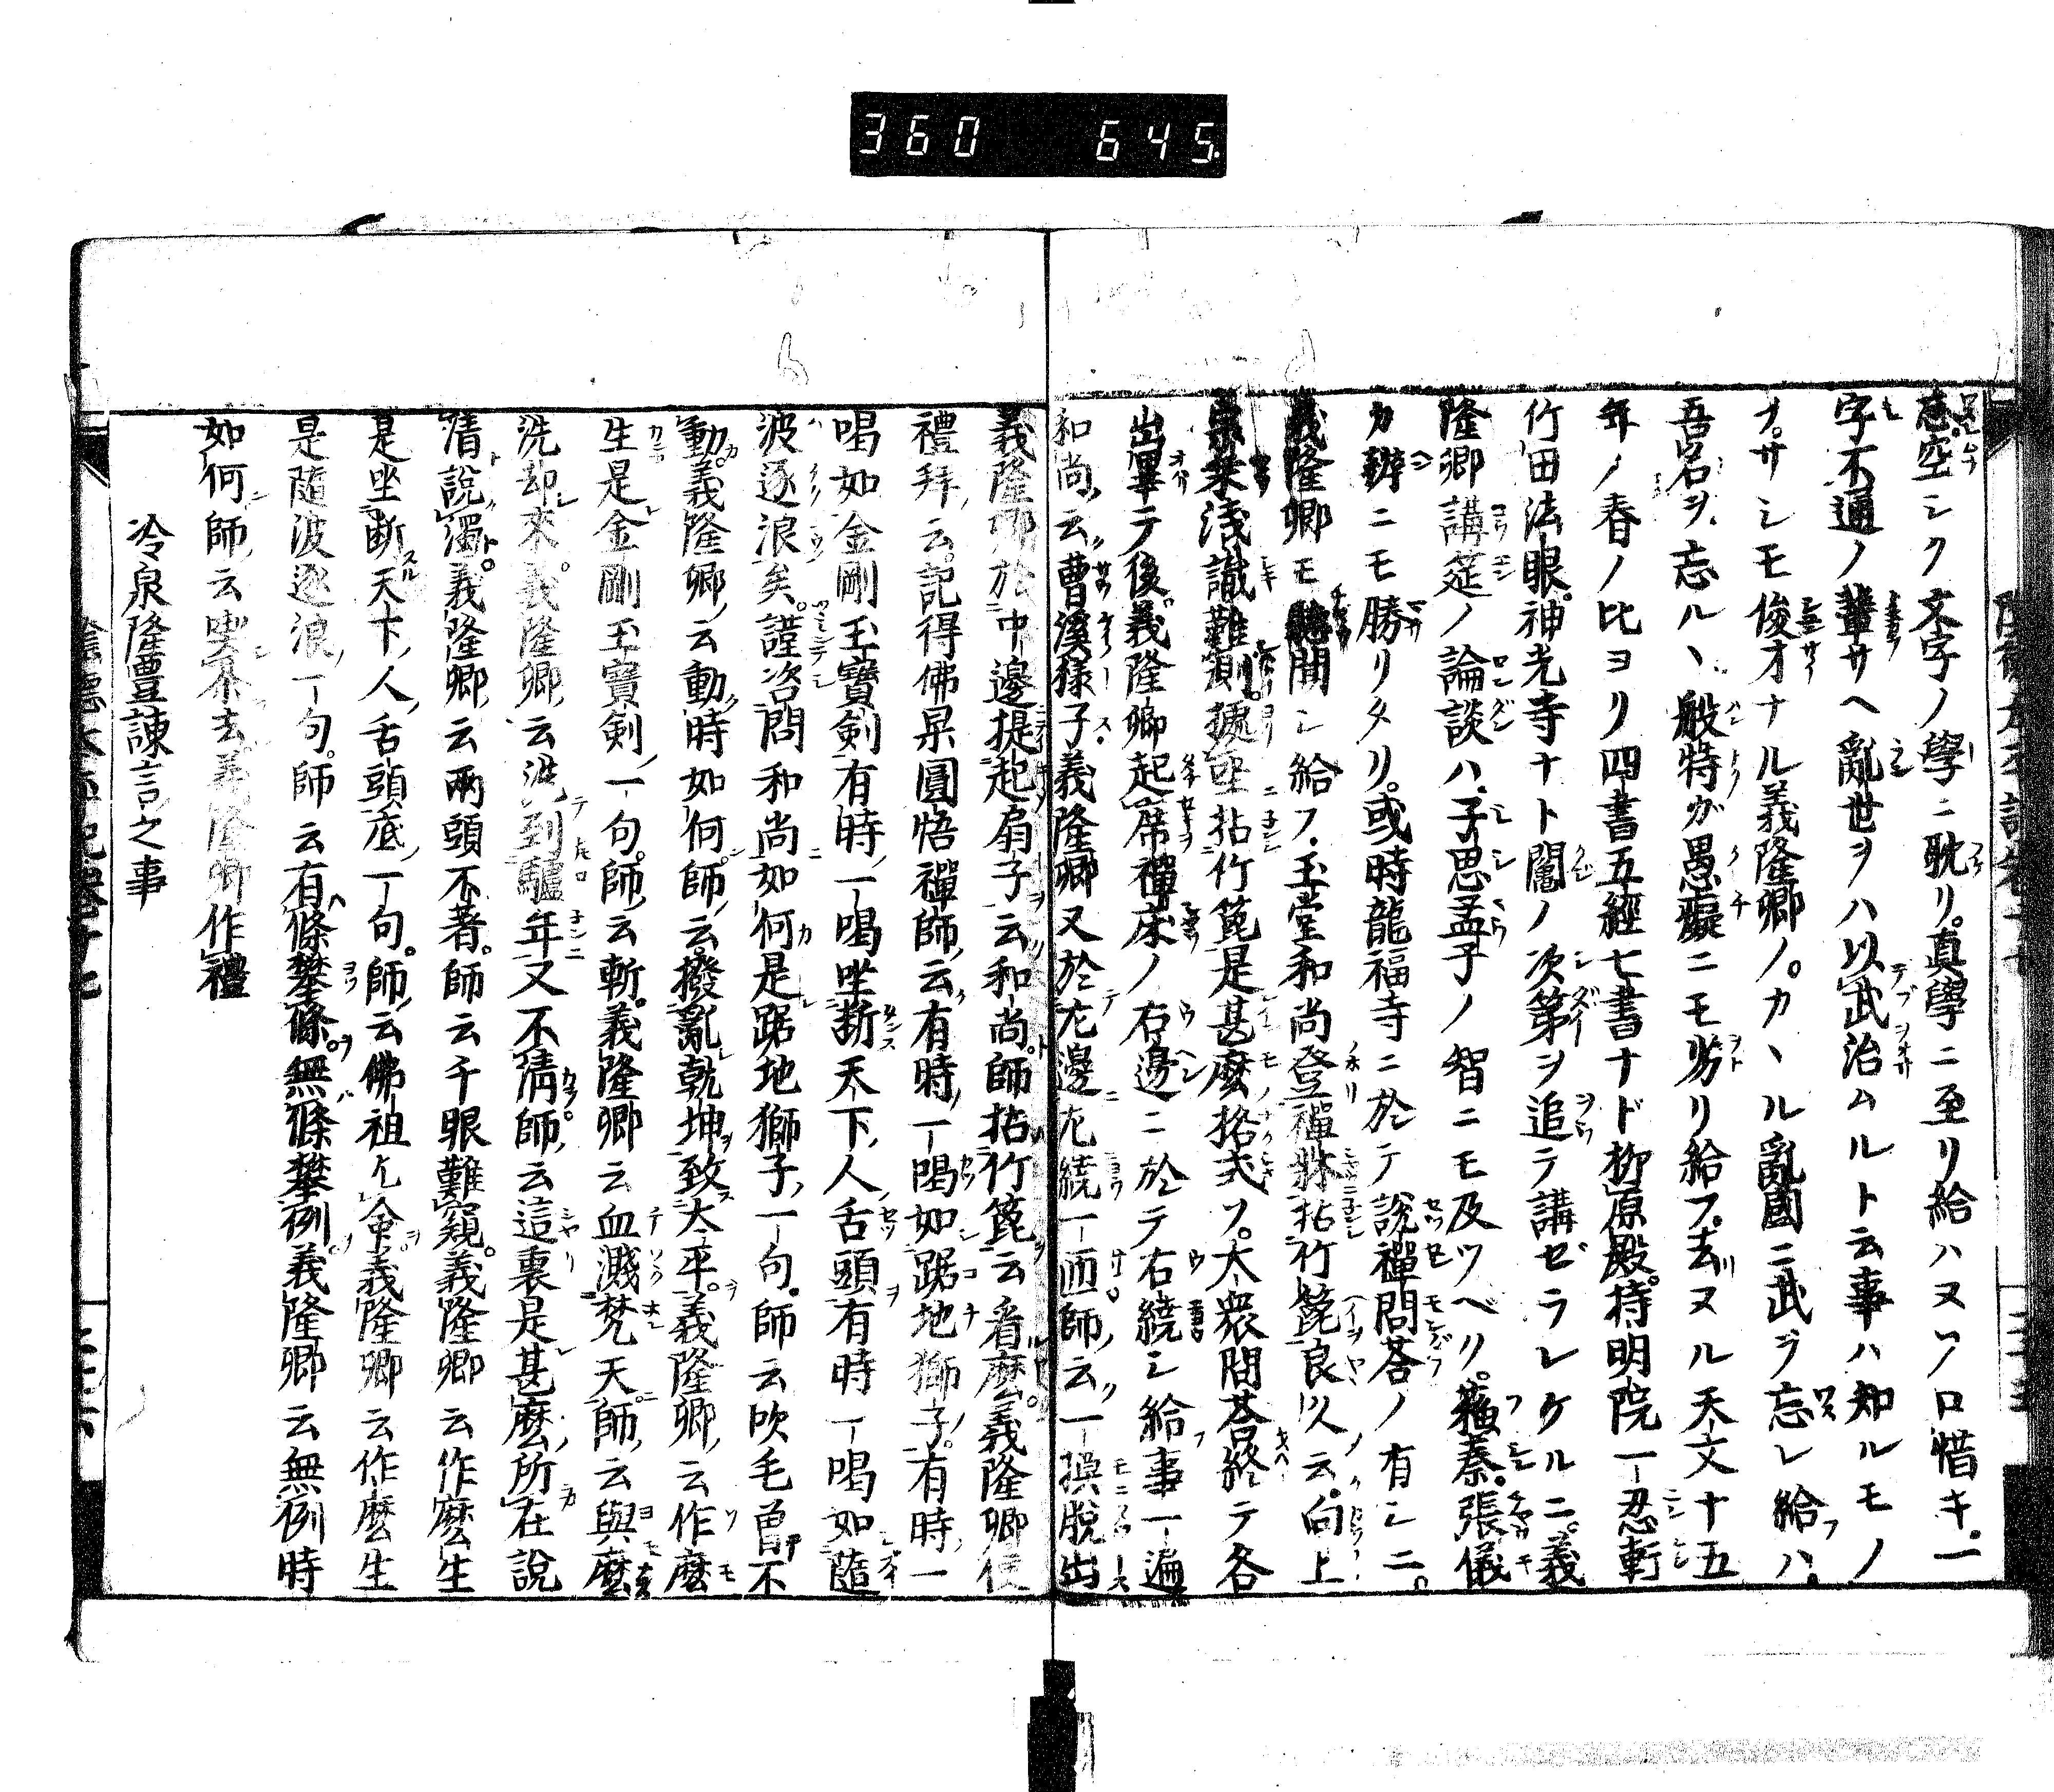 360 645
志空シク文字ノ學ニ耽リ。真學ニ至リ給ハヌソノ口惜キ。一
字不通ノ輩サヘ亂世ヲハ以武治ムルト云事ハ知ルモノ
ヲ。サシモ俊才ナル義隆卿ノ。カヽル亂國ニ武ヲ忘レ給ハ。
吾名ヲ忘ルヽ般特ガ愚癡ニモ劣リ給フ。去ヌル天文十五
年ノ春ノ比ヨリ四書五經七書ナド柳原殿。持明院一忍軒
竹田法眼。神光寺ナト䦰ノ次第ヲ追テ講ゼラレケルニ。義
隆卿講莚ノ論談ハ。子思孟子ノ智ニモ及ツベリ。蘓秦。張儀
カ辨ニモ勝リタリ。或時龍福寺ニ於テ說禪問荅ノ有シニ。
義隆卿モ聽聞シ給フ。玉堂和尚登禪牀拈竹篦良久云。向上
淺識難測。據坐拈竹篦是甚麼 大衆問荅終テ各
出畢テ後。義隆卿起席禪床ノ右邊ニ於テ右繞シ給事一遍
和尚云曹溪様子義隆卿又於左邊左繞一匝。師云一摸脫出
義隆卿於中邊提起扇子云和尚。師拈竹篦云看麼。義隆卿便
禮拜云。記得佛杲圓悟禪師云有時一喝如踞地獅子。有時一
喝如金剛玉寶剣有時一喝坐断天下人舌頭有時一喝如隨
波逐浪矣。謹咨問和尚如何是踞地獅子一句。師云吹毛曾不
動。義隆卿云動時如何。師云撥亂乾坤致大平。義隆卿云作麼
生是金剛玉寶剣一句。師云斬。義隆卿云血濺梵天。師云與麼
洗却來。義隆卿云洗到驢年又不清。師云這裏是甚麼所在說
清說濁。義隆卿云兩頭不著。師云千眼難窺。義隆卿云作麼生
是坐断天下人舌頭底一句。師云佛祖乞命。義隆卿云作麼生
是隨波逐浪一句。師云有條攀條。無條攀例。義隆卿云無例時
如何師云 去義隆卿作禮
冷泉隆豊諌言之事